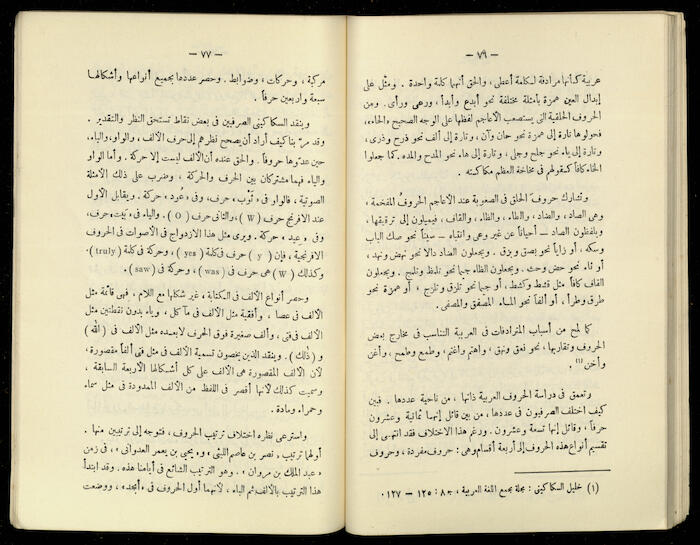 — ٧٦ —
عربية كأنها مرادفة لكلمة أعطى ، والحق أنهما كلمة واحدة . ومثّل على
إبدال العين همزة بأمثلة مختلفة نحو أبدع وأبدأ ، ورعى ورأى . ومن
الحروف الحلقية التى يستصعب الأعاجم لفظها على الوجه الصحيح «الحاء»،
فحولوها تارة إلى همزة نحو حان وآن ، وتارة إلى ألف نحو ذرح وذرى،
وتارة إلى ياء نحو جلح وجلى ، وتارة إلى هاء نحو المدح والمده . كما جعلوا
الخاء كافاً كقولهم فى مخاخة العظم مكاكته .
وتشارك حروفَ الحلق فى الصعوبة عند الأعاجم الحروفُ المفخمة ،
وهى الصاد، والضاد، والطاء، والظاء، والقاف، فيميلون إلى ترقيقها ،
ويلفظون الصاد — أحياناً عن غير وعى وانتباه — سيناً نحو صك الباب
وسكه ، أو زاياً نحو بصق وبزق . ويجعلون الضاد دالا نحو نهض ونهد ،
أو ثاء نحو حض وحث . ويجعلون الظاء جيما نحو تلفظ وتلمج . ويجعلون
القاف كافاً مثل قشط وكشط ، أو جيما نحو تلزق وتلزج ، أو همزة نحو
طرق وطرأ ، أو ألفاً نحو الماء المصفق والمصفى .
كما لمح من أسباب المترادفات فى العربية التناسب فى مخارج بعض
الحروف وتقاربها ، نحو نعق ونبق ، واهتم واغتم ، وطمع وطمح ، وأغن
وأخن (١) .
وتعمق فى دراسة الحروف العربية ذاتها ، من ناحية عددها . فبين
كيف اختلف الصرفيون فى عددها ، من بين قائل إنها ثمانية وعشرون
حرفاً ، وقائل إنها تسعة وعشرون . ورغم هذا الاختلاف فقد انتهى إلى
تقسيم أنواع هذه الحروف إلى أربعة أقسام وهى : حروف مفردة ، وحروف
(١) خليل السكاكينى : مجلة مجمع اللغة العربية ، جـ ٨ : ١٢٥ — ١٢٧ .
— ٧٧ —
مركبة ، وحركات ، وضوابط . وحصر عددها بجميع أنواعها وأشكالها
سبعة وأربعين حرفاً .
وينقد السكاكينى الصرفيين فى بعض نقاط تستحق النظر والتقدير .
وقد مرّ بنا كيف أراد أن يصحح نظرهم إلى حرف الألف ، والواو، والياء،
حين عدّوها حروفاً . والحق عنده أن الألف ليست إلا حركة . وأما الواو
والياء فهما مشتركتان بين الحرف والحركة ، وضرب على ذلك الأمثلة
الصوتية ، فالواو فى «ثَوْب» حرف، وفى «عُود» حركة. ويقابل الأول
عند الافرنج حرف ( W ) ، والثانى حرف ( O ) . والياء فى «بَيت» حرف،
وفى « عيد » حركة . ويرى مثل هذا الازدواج فى الأصوات فى الحروف
الافرنجية ، فإن ( y ) حرف فى كلمة ( yes ) وحركة فى كلمة ( truly ).
وكذلك ( W ) هى حرف فى ( was ) ، وحركة فى كلمة ( saw ) .
وحصر أنواع الألف فى الكتابة ، غير شكلها مع اللام ، فهى قائمة مثل
الألف فى عصا ، وأفقية مثل الألف فى مآكل ، وياء بدون نقطتين مثل
الألف فى فتى ، وألف صغيرة فوق الحرف لا بعده مثل الألف فى ( اللّه )
و ( ذلك ) . وينقد الذين يخصون تسمية الألف فى مثل فتى ألفاً مقصورة،
لأن الألف المقصورة هى الألف على كل أشكالها الأربعة السابقة ،
وسميت كذلك لأنها أقصر فى اللفظ من الألف الممدودة فى مثل سماء
وحمراء ومادة .
واسترعى نظره اختلاف ترتيب الحروف ، فتوجه إلى ترتيبين منها .
أولها ترتيب « نصر بن عاصم الليثى » و « يحيى بن يعمر العدوانى » ، فى زمن
« عبد الملك بن مروان » . وهو الترتيب الشائع فى أيامنا هذه . وقد ابتدأ
هذا الترتيب بالألف ثم الباء ، لأنهما أول الحروف فى «أبجد» ، ووضعت